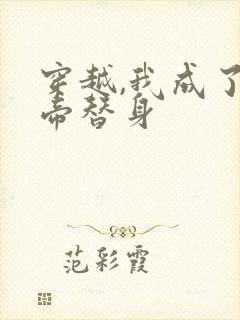 穿越,我成了
帝替身
范彩霞